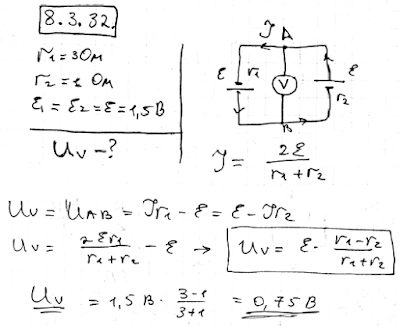 8.3.32.
r₁=3Ом
r₂=1 Ом
ℰ₁=ℰ₂=ℰ=1,5 В
Uv-?
J A
ℰ r₁ V ℰ r₂
B
J = 2ℰ / (r₁+r₂)
Uv = U_AB = Jr₁ - ℰ = ℰ - Jr₂
Uv = 2ℰr₁ / (r₁+r₂) - ℰ → Uv = ℰ · (r₁-r₂) / (r₁+r₂)
Uv = 1,5 В · (3-1) / (3+1) = 0,75 В